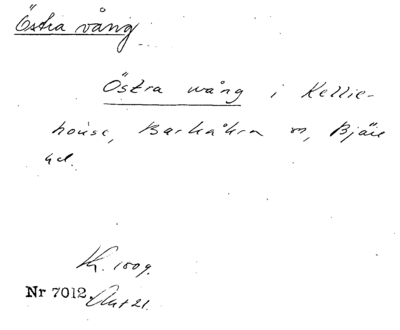 Östra vång
Östra wång i Kellie-
house, Barkåkra sn, Bjäre
hd.
1809.
Nr 7012.